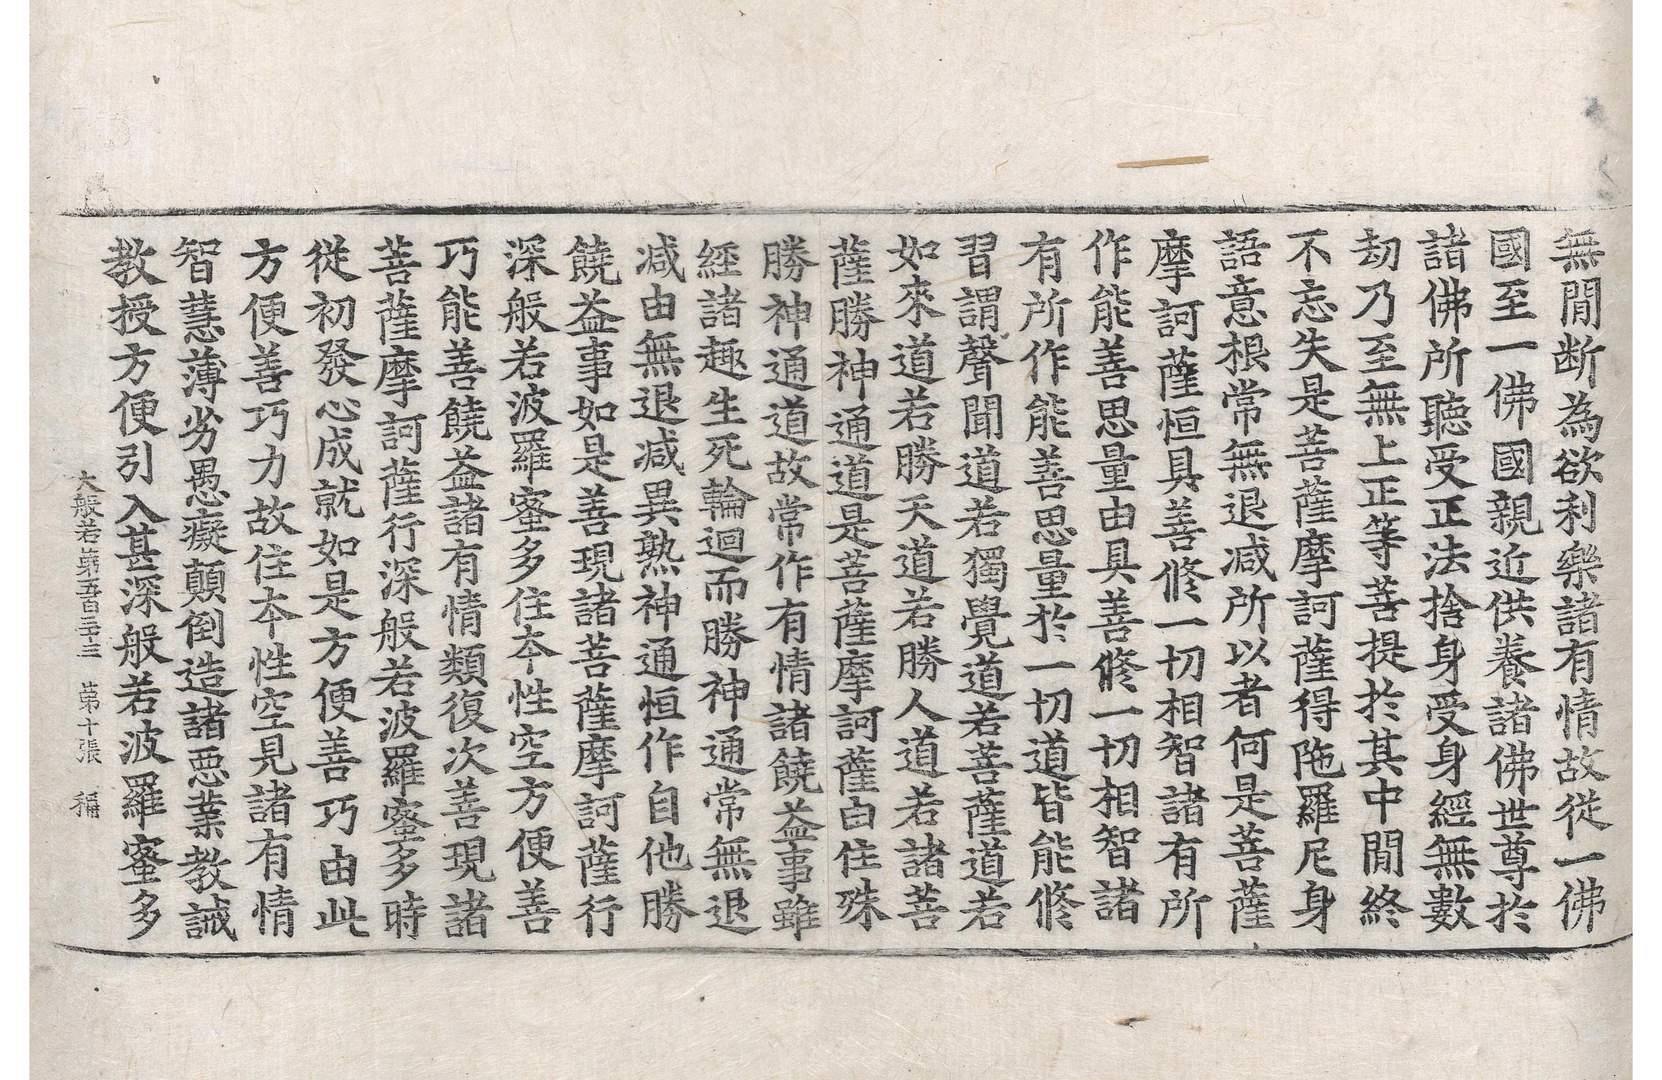 無閒断為欲利樂諸有情故從一佛
國至一佛國親近供養諸佛世尊於
諸佛所聽受正法捨身受身經無數
劫乃至無上正等菩提於其中閒終
不忘失是菩薩摩訶薩得陁羅尼身
語意根常無退減所以者何是菩薩
摩訶薩恒具善修一切相智諸有所
作能善思量由具善修一切相智諸
有所作能善思量於一切道皆能修
習謂聲聞道若獨覺道若菩薩道若
如來道若勝天道若勝人道若諸菩
薩勝神通道是菩薩摩訶薩由住殊
勝神通道故常作有情諸饒益事雖
經諸趣生死輪迴而勝神通常無退
減由無退減異熟神通恒作自他勝
饒益事如是善現諸菩薩摩訶薩行
深般若波羅蜜多住本性空方便善
巧能善饒益諸有情類復次善現諸
菩薩摩訶薩行深般若波羅蜜多時
從初發心成就如是方便善巧由此
方便善巧力故住本性空見諸有情
智慧薄劣愚癡顛倒造諸惡業教誡
教授方便引入甚深般若波羅蜜多
大般若第五百三十三 第十張 稱